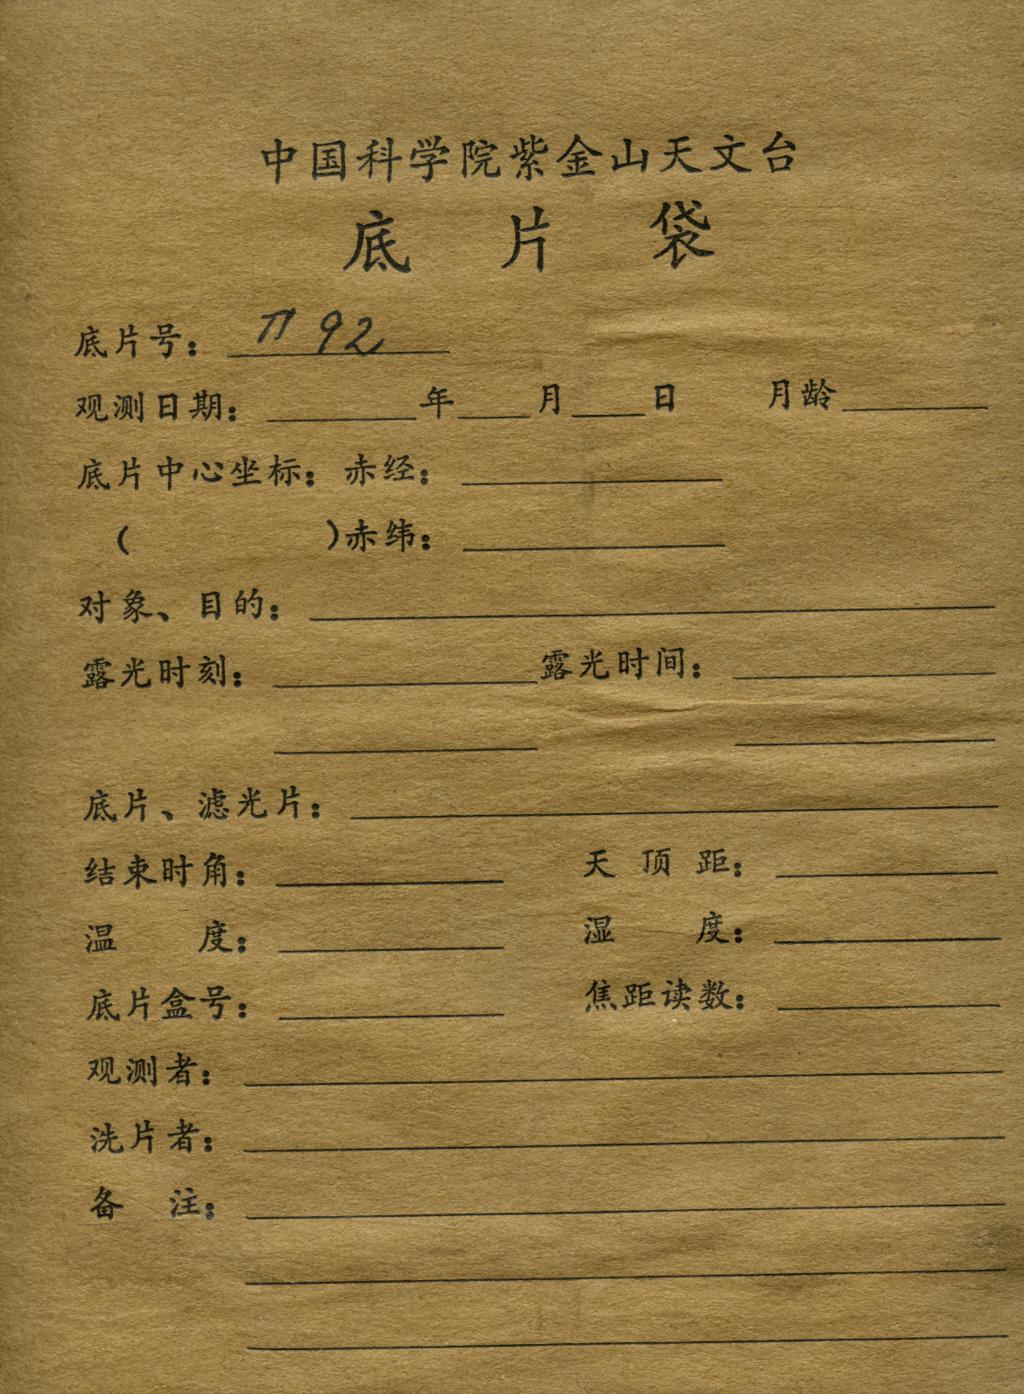 中国科学院紫金山天文台
底片袋
底片号： П 92
观测日期： 年 月 日 月龄
底片中心坐标：赤经：
（ ）赤纬：
对象、目的：
露光时刻： 露光时间：
底片、滤光片：
结束时角： 天顶距：
温度： 湿度：
底片盒号： 焦距读数：
观测者：
洗片者：
备注：